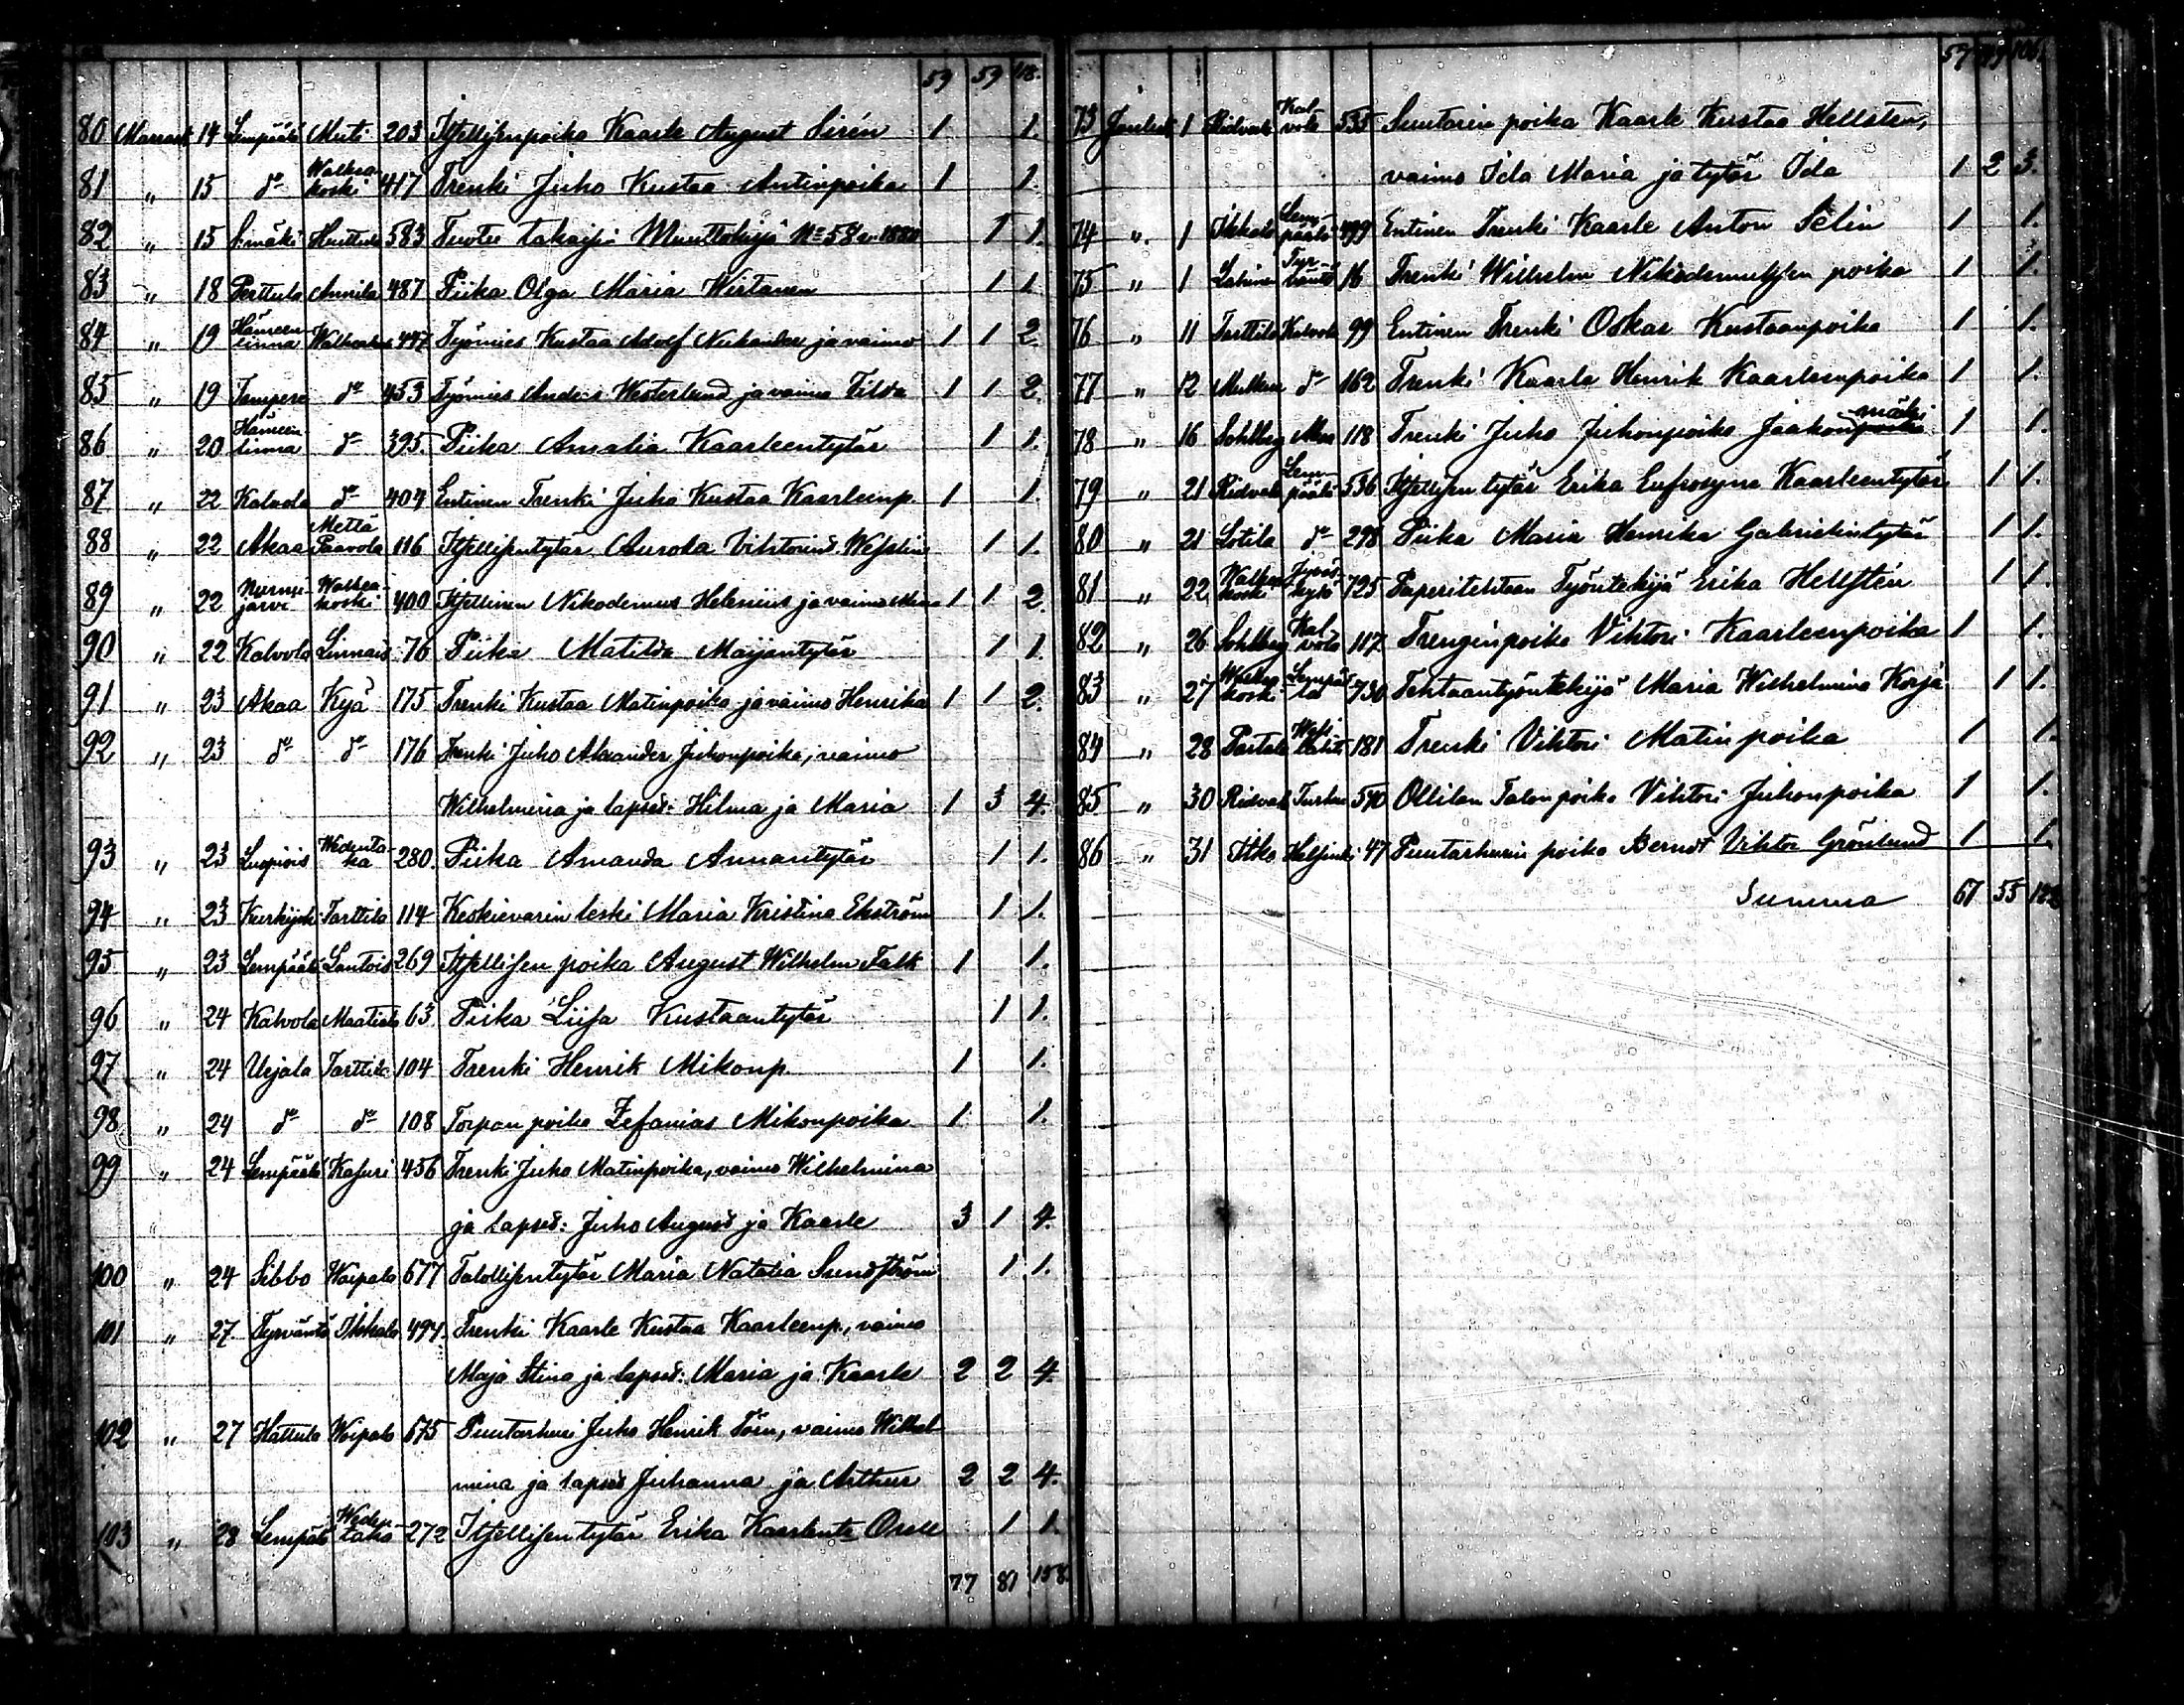 59 59 118.
80 Marrask 14 Lempäälä Muti 203 Itsellisenpoika Kaarle August Sirén 1 1.
81 " 15 do Walkea-koski 417 Trenki Juho Kustaa Antinpoika 1 1.
82 " 15 S:mäki Huittula 583 Tuotu takaisin Muuttokirja No 58 v. 1880 1 1.
83 " 18 Perttula Annila 487 Piika Olga Maria Wirtanen 1 1
84 " 19 Hämeen-linna Walkeakoski 447 Työmies Kustaa Adolf Nikander ja vaimo 1 1 2.
85 " 19 Tampere do 453 Työmies Anders Westerlund ja vaimo Tilda 1 1 2.
86 " 20 Hämeen-linna do 395. Piika Amalia Kaarleentytär 1 1.
87 " 22 Kalvola do 404 Entinen Trenki Juho Kustaa Kaarleenp. 1 1.
88 " 22 Akaa Mettä Paavola 116 Itsellisentytär Aurora Vihtorina Weslin 1 1.
89 " 22 Nurmi-järvi Walkea-koski 400 Itsellinen Nikodemus Helenius ja vaimo 1 1 2.
90 " 22 Kalvola Linnais 76 Piika Matilda Maijantytär 1 1.
91 " 23 Akaa Kyä 175 Trenki Kustaa Matinpoika ja vaimo Henrika 1 1 2.
92 " 23 do do 176 Trenki Juho Alexander Juhonpoika, vaimo
Wilhelmina ja lapset: Hilma ja Maria 1 3 4.
93 " 23 Luopiois Wedenta-ka 280. Piika Amanda Annantytär 1 1.
94 " 23 Tarttila 114 Keskievarin leski Maria Kristina Ekström 1 1.
95 " 23 Lempäälä Lontois 269 Itsellisen poika August Wilhelm Falk 1 1.
96 " 24 Kalvola Maatiala 63 Piika Liisa Kustaantytär 1 1.
97 " 24 Urjala Tarttila 104 Trenki Henrik Mikonp. 1 1.
98 " 24 do do 108 Torpan poika Zefanias Mikonpoika 1 1.
99 " 24 Lempäälä Kasuri 456 Trenki Juho Matinpoika, vaimo Wilhelmina
ja lapset: Juho August ja Kaarle 3 1 4.
100 " 24 Sibbo Woipala 677 Talollisentytär Maria Natalia Sundström 1 1.
101 " 27. Tyrväntö Ikkala 494. Trenki Kaarle Kustaa Kaarleenp., vaimo
Maja Stina ja lapset: Maria ja Kaarle 2 2 4.
102 " 27 Hattula Woipala 675 Puutarhuri Juho Henrik Törn, vaimo Wilhel-
mina ja lapset Juhanna ja Arthur 2 2 4.
103 " 28 Lempäälä Weden-taka 272 Itsellisen tytär Erika Kaarlent: 1 1.
77 81 158.
57 49 106.
73 Jouluk 1 Ridvala Kal-vola 535 Suutarin poika Kaarle Kustaa Hellsten,
vaimo Ida Maria ja tytär Ida 1 2 3.
74 " 1 Ikkala Lem-päälä 499 Entinen Trenki Kaarle Anton Selin 1 1.
75 " 1 Lahinen Tyr-väntö 16 Trenki Wilhelm Nikodemuksen poika 1 1.
76 " 11 Tarttila Kalvola 99 Entinen Trenki Oskar Kustaanpoika 1 1.
77 " 12 do 162 Trenki Kaarle Henrik Kaarleenpoika 1 1.
78 " 16 Sohlberg Akaa 118 Trenki Juho Juhonpoika Jaakonpoika mäki 1 1.
79 " 21 Ridvala Lem-päälä 536 Itsellisen tytär Erika Eufrosyna Kaarleentytär 1 1.
80 " 21 Sotila do 298 Piika Maria Henrika Gabrielintytär 1 1.
81 " 22 Walkea-koski Jyväs-kylä 725 Paperitehtaan Työntekijä Erika Hellstén 1 1.
82 " 26 Sohlberg Kal-vola 117. Trenginpoika Vihtori Kaarleenpoika 1 1.
83 " 27 Walkea-koski Lempää-lä 730 Tehtaantyöntekijä Maria Wilhelmina Korja 1 1.
84 " 28 Partala Wesi-lahti 181 Trenki Vihtori Matinpoika 1 1.
85 " 30 Ridvala Turku 540 Ollilan Talon poika Vihtori Juhonpoika 1 1.
86 " 31 Helsinki 47 Puutarhurin poika Berndt Viktor Grönlund 1 1.
Summa 67 55 122